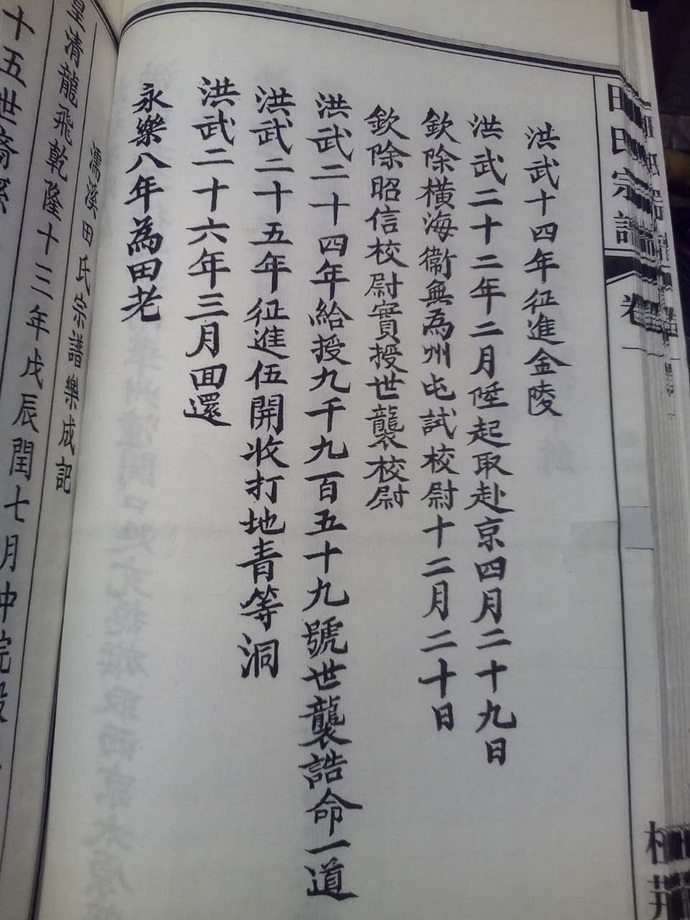 田氏宗譜
卷一
洪武十四年征進金陵
洪武二十二年二月陞起取赴京四月二十九日
欽除橫海衞無為州屯試校尉十二月二十日
欽除昭信校尉實授世襲校尉
洪武二十四年給授九千九百五十九號世襲誥命一道
洪武二十五年征進伍開收打地青等洞
洪武二十六年三月回還
永樂八年為田老
濡溪田氏宗譜樂成記
皇清龍飛乾隆十三年戊辰閏七月中浣
十五世裔孫